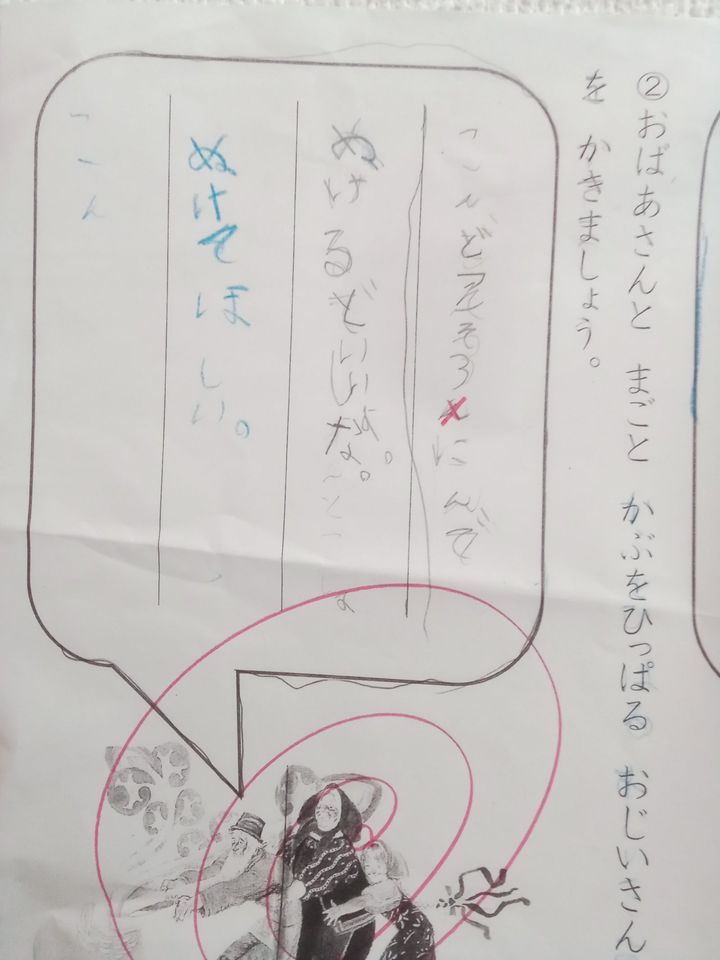 ②おばあさんと まごと かぶをひっぱる おじいさん
を かきましょう。
こんど にんで
ぬけるといいな。
ぬけてほしい。
こん